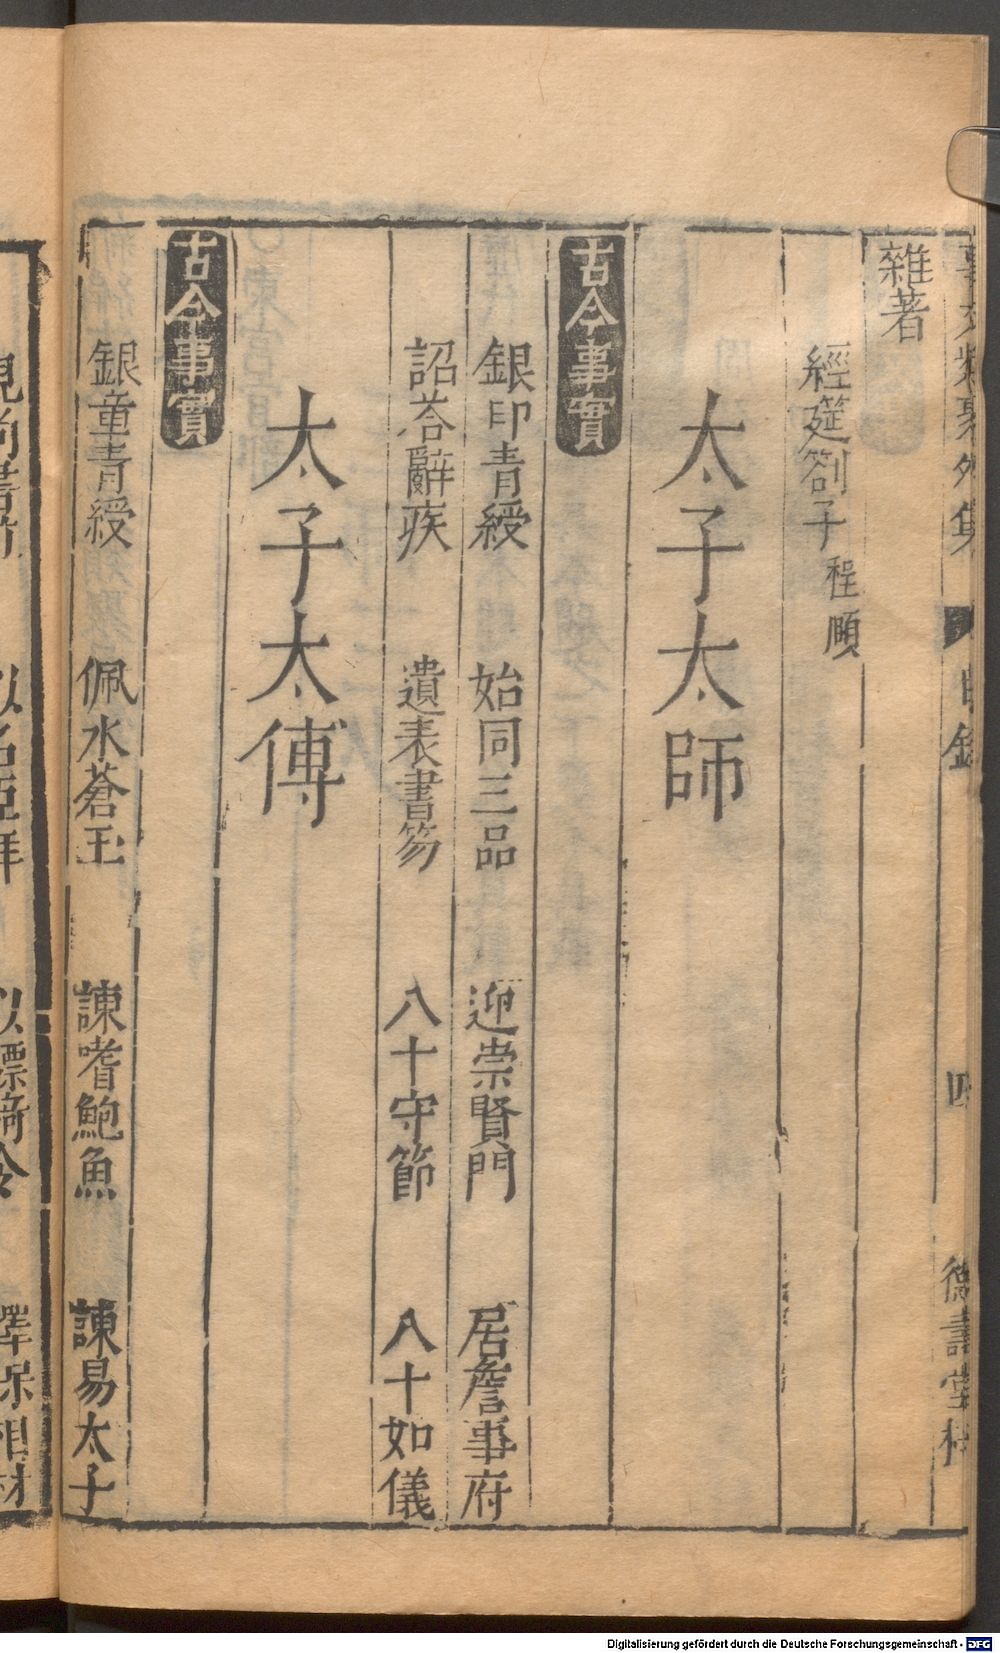 事文類聚外集 目錄 四 德壽堂梓
雜著
經筵劄子 程頤
太子太師
古今事實
銀印青綬 始同三品 迎崇賢門 居詹事府
詔荅辭疾 遺表書笏 八十守節 八十如儀
太子太傅
古今事實
銀章青綬 佩水蒼玉 諫嗜鮑魚 諫易太子
Digitalisierung gefördert durch die Deutsche Forschungsgemeinschaft - DFG